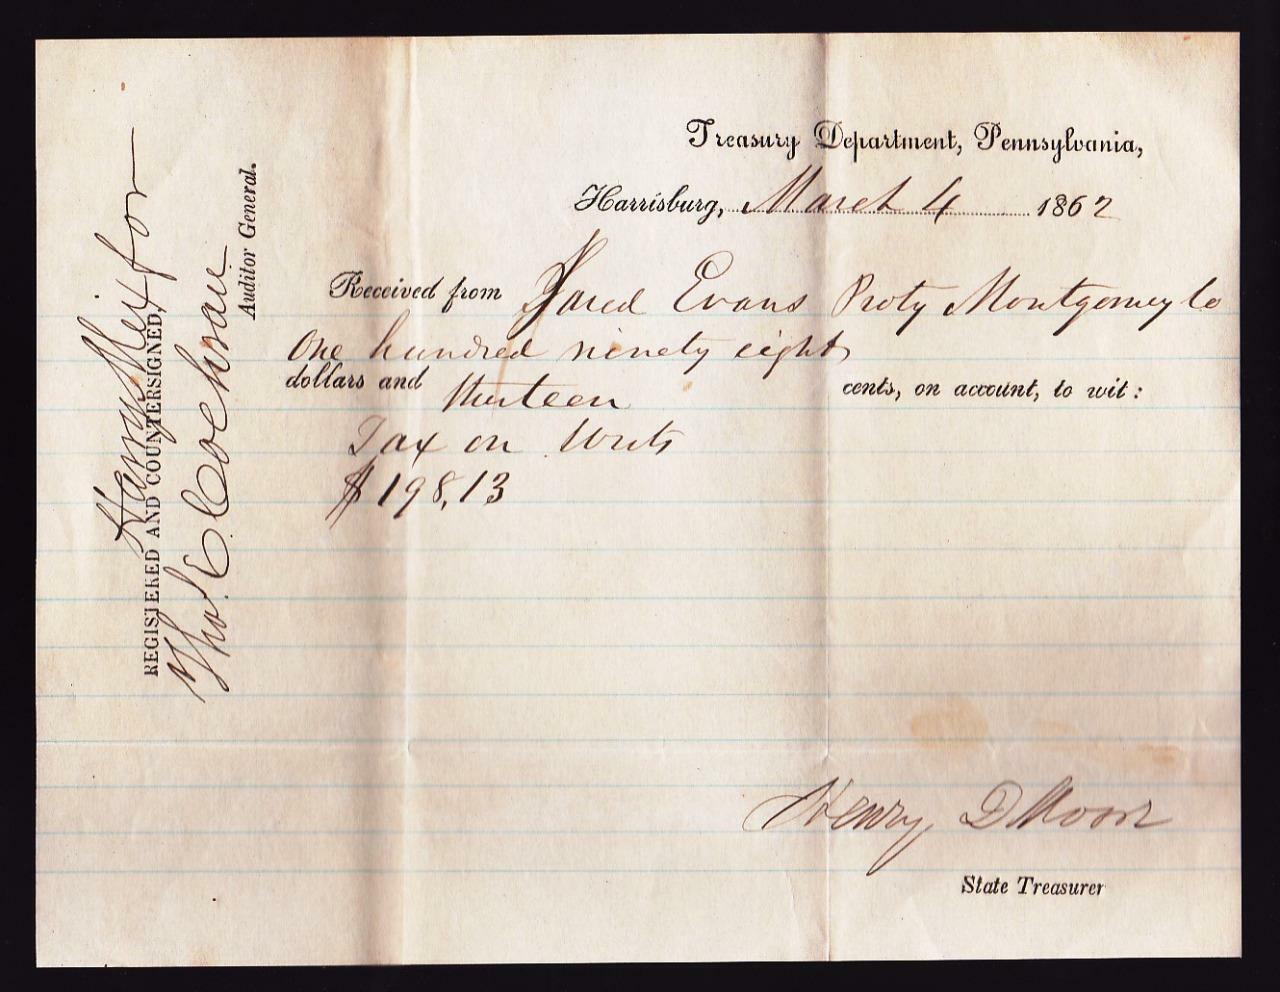 Treasury Department, Pennsylvania,
Harrisburg, March 4 1862
Received from Jared Evans Proty Montgomery Co
One hundred ninety eight
dollars and thirteen cents, on account, to wit:
Tax on Writs
$198,13
Henry D Moore
State Treasurer
REGISTERED AND COUNTERSIGNED,
for
Tho. E Cochran
Auditor General.